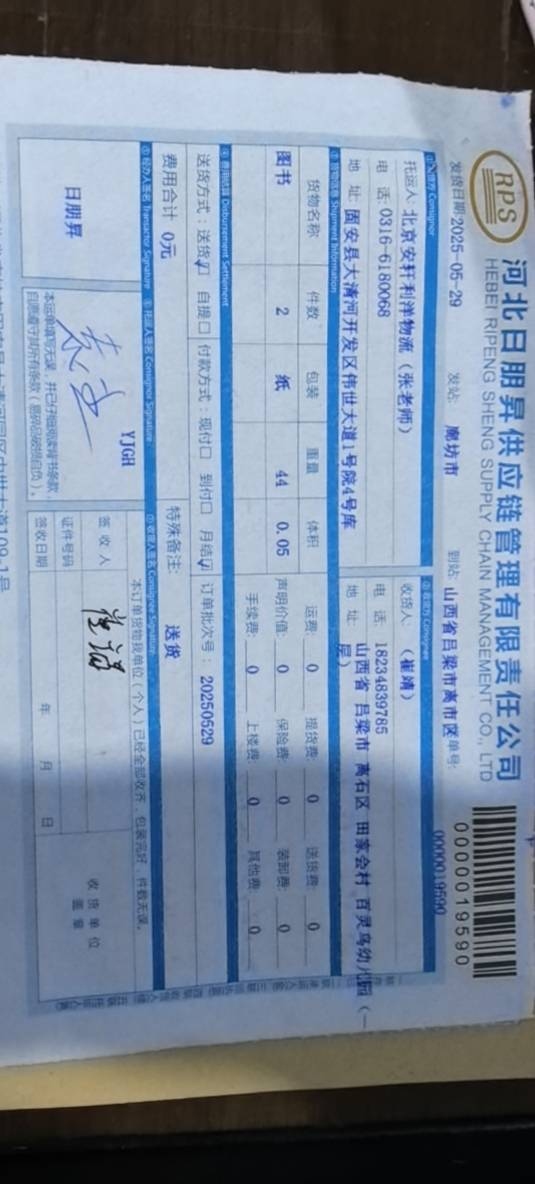 RPS
河北日朋昇供应链管理有限责任公司
HEBEI RIPENG SHENG SUPPLY CHAIN MANAGEMENT CO., LTD
0000019590
发货日期:2025-05-29 发站: 廊坊市 到站: 山西省吕梁市离市区 单号: 0000019590
Consignor
托运人: 北京安轩利洋物流 (张老师)
电 话: 0316-6180068
地 址: 固安县大清河开发区伟世大道1号院4号库
② 收货方 Consignee
收货人: (崔靖)
电 话: 18234839785
地 址: 山西省 吕梁市 离石区 田家会村 百灵鸟幼儿园 (一层)
Shipment Information
货物名称 件数 包装 重量 体积
图书 2 纸 44 0.05
运费: 0 提货费: 0 送货费: 0
声明价值: 0 保险费: 0 装卸费: 0
手续费: 0 上楼费: 0 其他费: 0
费用结算 Disbursement Settlement
送货方式: 送货☑ 自提□ 付款方式: 现付□ 到付□ 月结☑ 订单批次号: 20250529
费用合计 0元 特殊备注: 送货
⑤ 经办人签名 Transactor Signature
日朋昇
⑥ 托运人签名 Consignor Signature
YJGH
本运单填写无误, 并已仔细阅读背书条款,
自愿遵守其所有条款 (易碎品破损自负)。
⑦ 收货人签名 Consignee Signature
本订单货物我单位 (个人) 已经全部收齐, 包装完好, 件数无误。
签 收 人
证件号码
签收日期 年 月 日
收 货 单 位:
盖 章